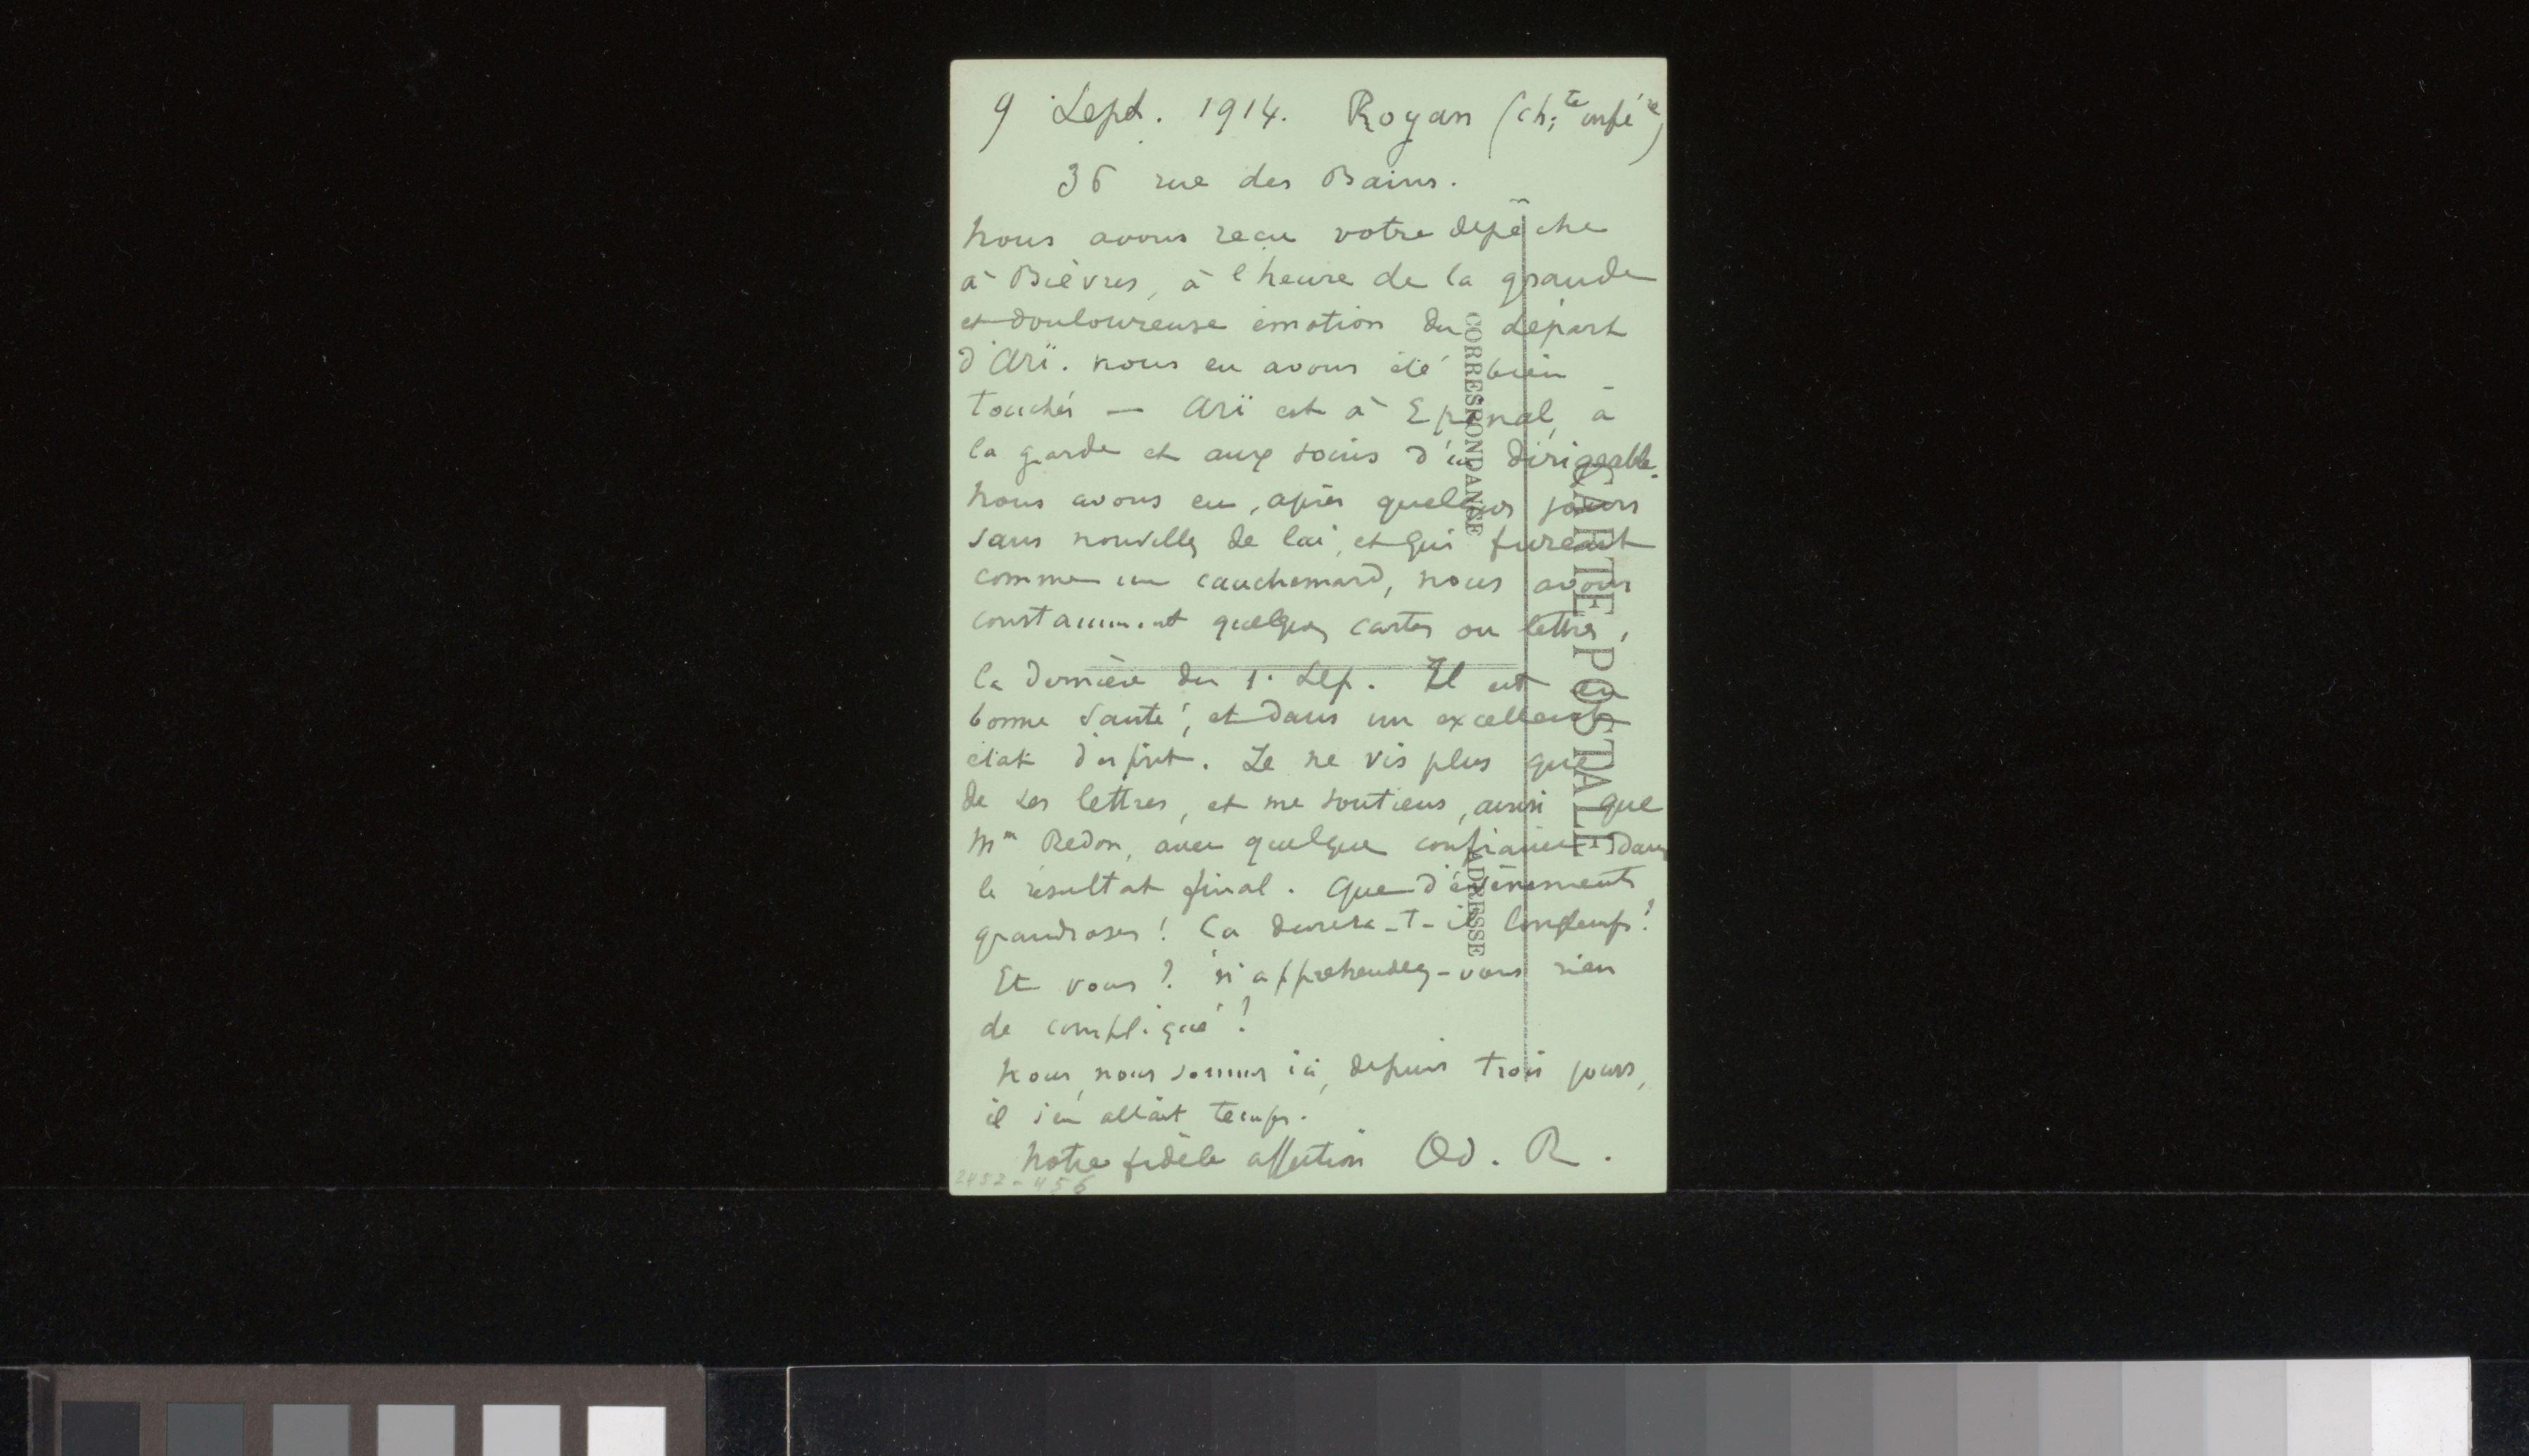 9 Sept. 1914. Royan (Ch:te infére)
36 rue des Bains.
Nous avons reçu votre depêche
à Bièvres, à l'heure de la grande
et douloureuse émotion du départ
d'Arï. nous en avons été bien
touchés — Arï est à Epinal, à
la garde et aux soins d'un dirigeable.
Nous avons eu, après quelques jours
sans nouvelles de lui, et qui furent
comme un cauchemard, nous avons
constamment quelques cartes ou lettres,
la dernière du 1. Sep. Il est en
bonne santé, et dans un excellent
état d'esprit. Je ne vis plus que
de ses lettres, et me soutiens, ainsi que
Mm Redon, avec quelque confiance dans
le résultat final. Que d'évènements
grandioses! Ca durera-t-il longtemps?
Et vous? n'apprehendez-vous rien
de compliqué?
Nous, nous sommes ici, depuis trois jours,
il s'en allait temps.
Notre fidèle affection Od. R.
2452-456
CARTE POSTALE
CORRESPONDANCE
ADRESSE